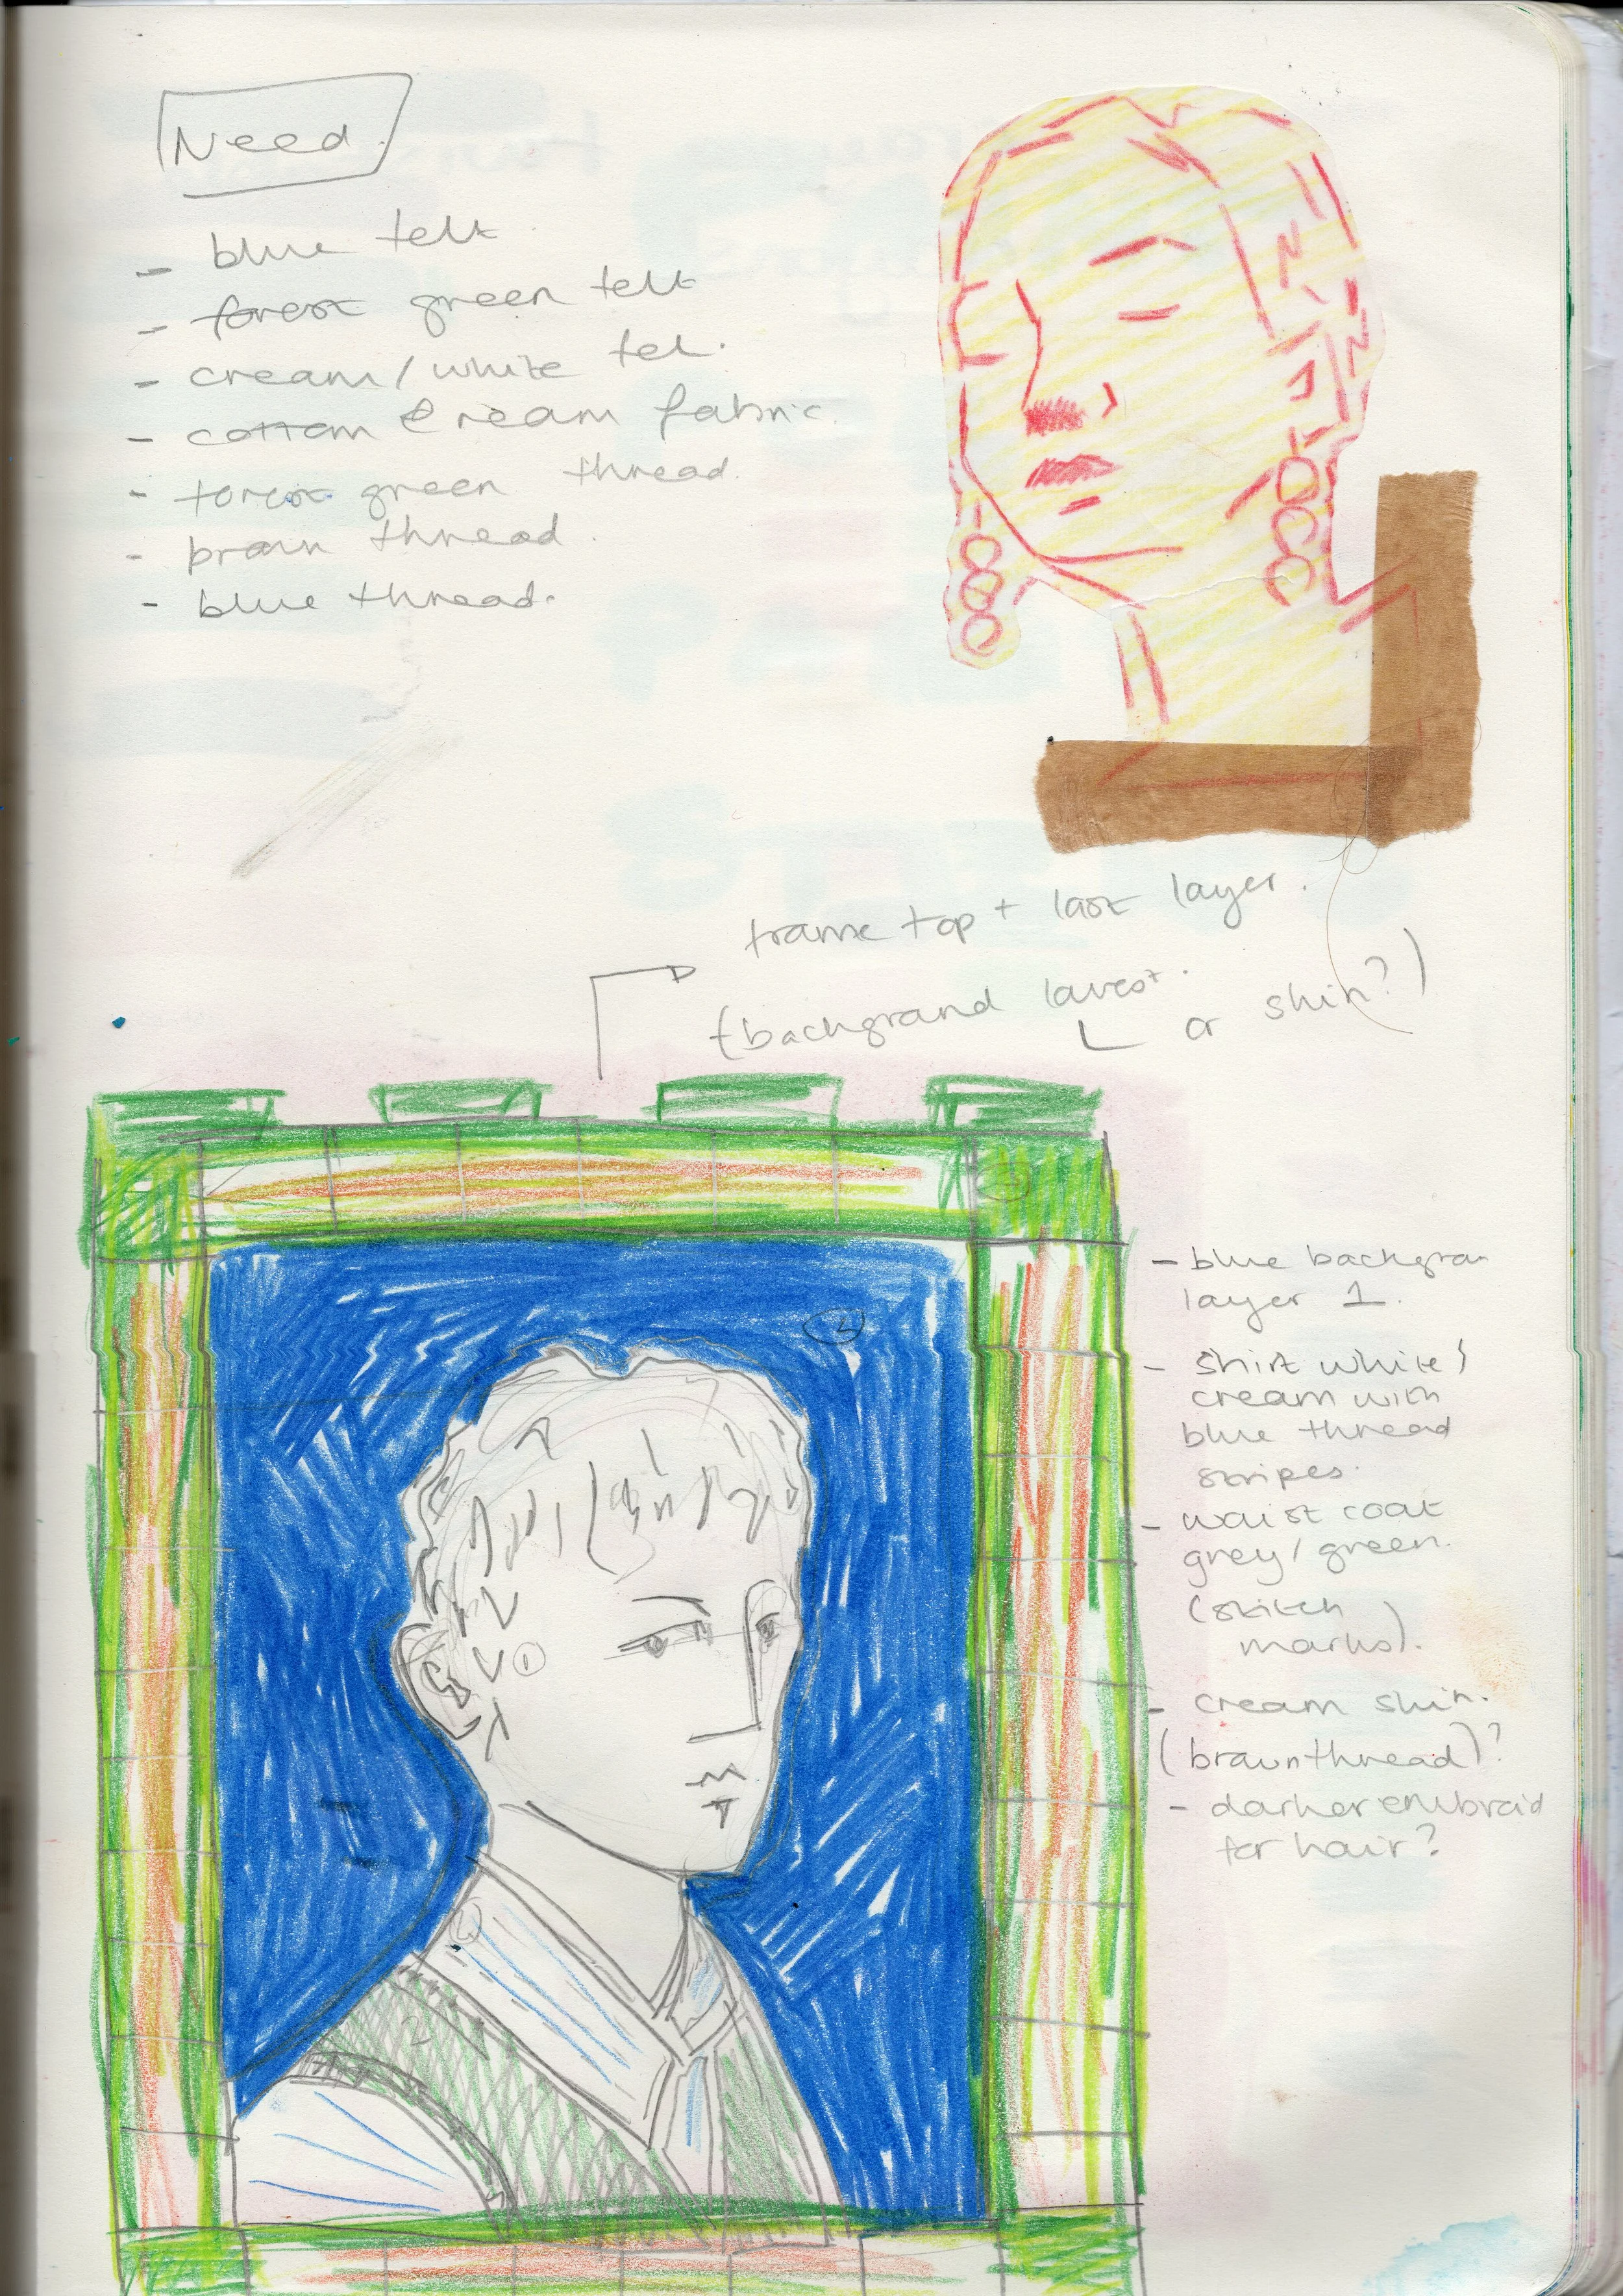 Need.
- blue felt
- forest green felt
- cream/white fel.
- cotton cream fabric.
- forest green thread.
- brown thread.
- blue thread.
frame top + last layer.
(background lowest.
or skin?)
- blue backgroun
layer 1.
- shirt white/
cream with
blue thread
stripes.
- waist coat
grey/green.
(stitch
marks).
- cream skin.
(brown thread)?
- darker embroid
for hair?
1
2